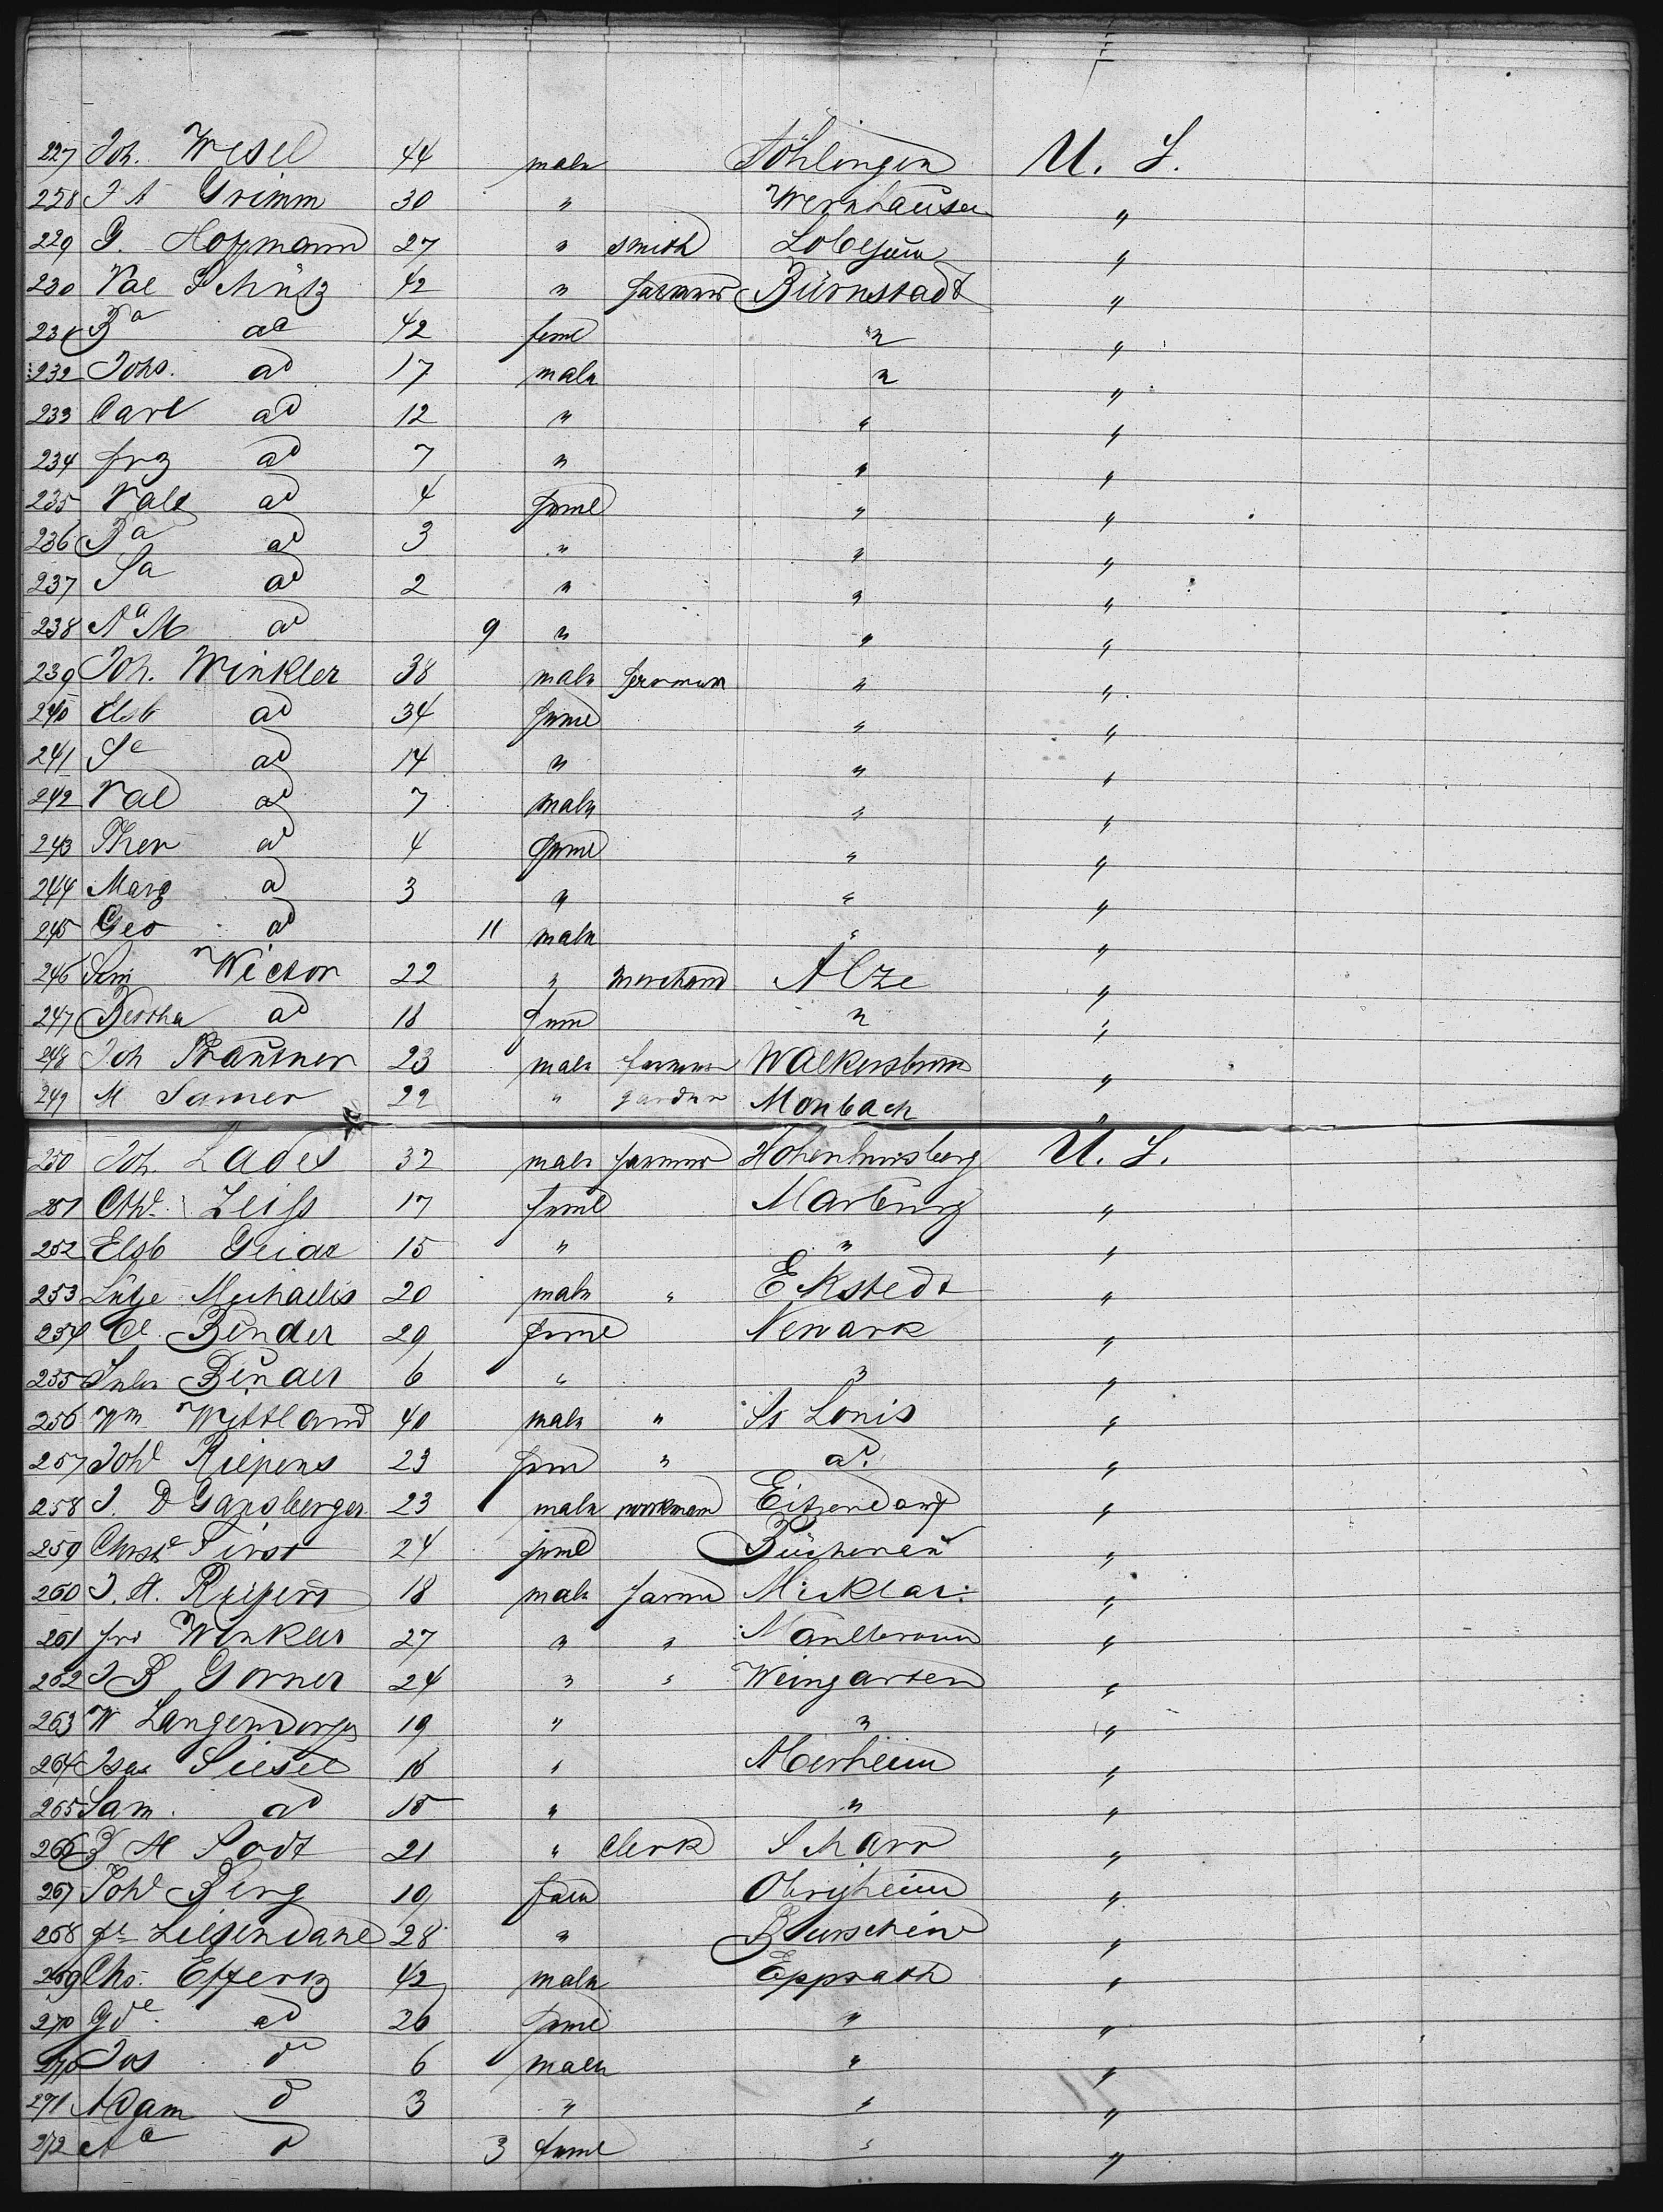 227 Joh. Wesel 44 male Söhlingen U. S.
228 J A Grimm 30 " Wernhausen "
229 G. Hofmann 27 " smith Lobejün "
230 Val Schütz 42 " farmer Bürnstadt "
231 Ba ad 42 feml " "
232 Johs. ad 17 male " "
233 Carl ad 12 " " "
234 frz ad 7 " " "
235 Vale ad 4 feml " "
236 Ba ad 3 " " "
237 Sa ad 2 " " "
238 Aa M ad 9 " " "
239 Joh. Winkler 38 male farmer " "
240 Elsb ad 34 feml " "
241 Se ad 14 " " "
242 Val ad 7 male " "
243 Ther ad 4 feml " "
244 Marg ad 3 " " "
245 Geo ad 11 male " "
246 Wictor 22 " merchand Alze "
247 Bertha ad 18 fem " "
248 Joh Brautner 23 male farmer Walkersbrun "
249 M Samer 22 " gardner Monbach "
250 Joh. Lades 32 male farmer U. S.
251 Cthe Zeiss 17 feml Marburg "
252 Elsb 15 " " "
253 Lütje Michaelis 20 male " Ekstedt "
254 Cl. Binder 29 feml Newark "
255 Binder 6 " " "
256 Wm Wittland 40 male " St Louis "
257 Johe Riepens 23 fem " ad. "
258 J. D Gansberger 23 male workman Eitzendorf "
259 Christe First 24 feml Büchenau "
260 J. H. Riepens 18 male farmer Micklar: "
261 frd Winkler 27 " " Maulbronn "
262 J B Gorner 24 " " Weingarten "
263 W Langendorf 19 " " "
264 Isac Siesel 16 " Merheim "
265 Sam. ad 15 " " "
266 B M Sodt 21 " Clerk Scharr "
267 Johe Berg 19 fem Obrigheim "
268 fe Liesendahl 28 " "
269 Chs. Effertz 42 male Epprath "
270 Gde ad 26 feml " "
270 Jos do 6 male " "
271 Adam d 3 " " "
272 Aa d 3 feml " "